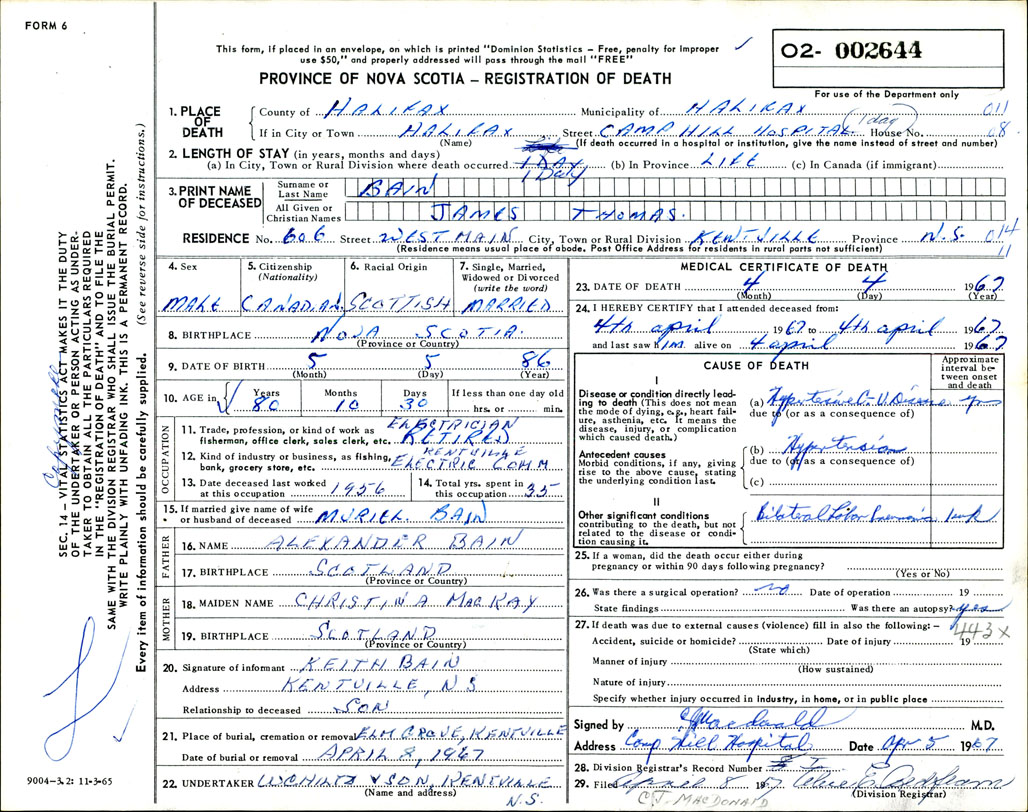 FORM 6
This form, if placed in an envelope, on which is printed "Dominion Statistics – Free, penalty for improper
use $50," and properly addressed will pass through the mail "FREE"
O2- 002644
PROVINCE OF NOVA SCOTIA – REGISTRATION OF DEATH
For use of the Department only
1. PLACE OF DEATH
County of HALIFAX Municipality of HALIFAX 011
If in City or Town HALIFAX Street CAMP HILL HOSPITAL (1 day) House No. 08
(Name) (If death occurred in a hospital or institution, give the name instead of street and number)
2. LENGTH OF STAY (in years, months and days)
(a) In City, Town or Rural Division where death occurred 1 DAY (b) In Province LIFE (c) In Canada (if immigrant)
1 Day
3. PRINT NAME OF DECEASED
Surname or Last Name BAIN
All Given or Christian Names JAMES THOMAS.
RESIDENCE No. 606 Street WEST MAIN City, Town or Rural Division KENTVILLE Province N.S. 014
(Residence means usual place of abode. Post Office Address for residents in rural parts not sufficient) 11
4. Sex MALE
5. Citizenship (Nationality) CANADIAN
6. Racial Origin SCOTTISH
7. Single, Married, Widowed or Divorced (write the word) MARRIED
8. BIRTHPLACE NOVA SCOTIA.
(Province or Country)
9. DATE OF BIRTH 5 5 86
(Month) (Day) (Year)
10. AGE in Years 80 Months 10 Days 30 If less than one day old hrs. or min.
OCCUPATION
11. Trade, profession, or kind of work as fisherman, office clerk, sales clerk, etc. ELECTRICIAN RETIRED
12. Kind of industry or business, as fishing, bank, grocery store, etc. KENTVILLE ELECTRIC COMM
13. Date deceased last worked at this occupation 1956
14. Total yrs. spent in this occupation 35
15. If married give name of wife or husband of deceased MURIEL BAIN
FATHER
16. NAME ALEXANDER BAIN
17. BIRTHPLACE SCOTLAND
(Province or Country)
MOTHER
18. MAIDEN NAME CHRISTINA MACKAY
19. BIRTHPLACE SCOTLAND
(Province or Country)
20. Signature of informant KEITH BAIN
Address KENTVILLE, N S
Relationship to deceased SON
21. Place of burial, cremation or removal ELM GROVE, KENTVILLE
Date of burial or removal APRIL 8, 1967
22. UNDERTAKER & SON, KENTVILLE
(Name and address) N.S.
MEDICAL CERTIFICATE OF DEATH
23. DATE OF DEATH 4 4 1967
(Month) (Day) (Year)
24. I HEREBY CERTIFY that I attended deceased from:
4th april 1967 to 4th april 1967
and last saw him alive on 4 april 1967
CAUSE OF DEATH
Approximate interval between onset and death
I
Disease or condition directly leading to death (This does not mean the mode of dying, e.g., heart failure, asthenia, etc. It means the disease, injury, or complication which caused death.)
(a) Hypertensive C-V Disease
due to (or as a consequence of)
Antecedent causes
Morbid conditions, if any, giving rise to the above cause, stating the underlying condition last.
(b) Hypertension
due to (or as a consequence of)
(c)
II
Other significant conditions contributing to the death, but not related to the disease or condition causing it.
Bilateral Lobar Pneumonia
25. If a woman, did the death occur either during pregnancy or within 90 days following pregnancy?
(Yes or No)
26. Was there a surgical operation? no Date of operation 19
State findings Was there an autopsy? yes
27. If death was due to external causes (violence) fill in also the following: –
443X
Accident, suicide or homicide? Date of injury 19
(State which)
Manner of injury
(How sustained)
Nature of injury
Specify whether injury occurred in industry, in home, or in public place
Signed by CJ Macdonald M.D.
Address Camp Hill Hospital Date Apr 5 1967
28. Division Registrar's Record Number
29. Filed April 8 19
(Division Registrar)
C.J. MACDONALD
SEC. 14 – VITAL STATISTICS ACT MAKES IT THE DUTY
OF THE UNDERTAKER OR PERSON ACTING AS UNDER-
TAKER TO OBTAIN ALL THE PARTICULARS REQUIRED
IN THE "REGISTRATION OF DEATH" AND TO FILE THE
SAME WITH THE DIVISION REGISTRAR WHO SHALL ISSUE THE BURIAL PERMIT.
WRITE PLAINLY WITH UNFADING INK. THIS IS A PERMANENT RECORD.
Every item of information should be carefully supplied. (See reverse side for instructions.)
9004-3.2: 11-3-65